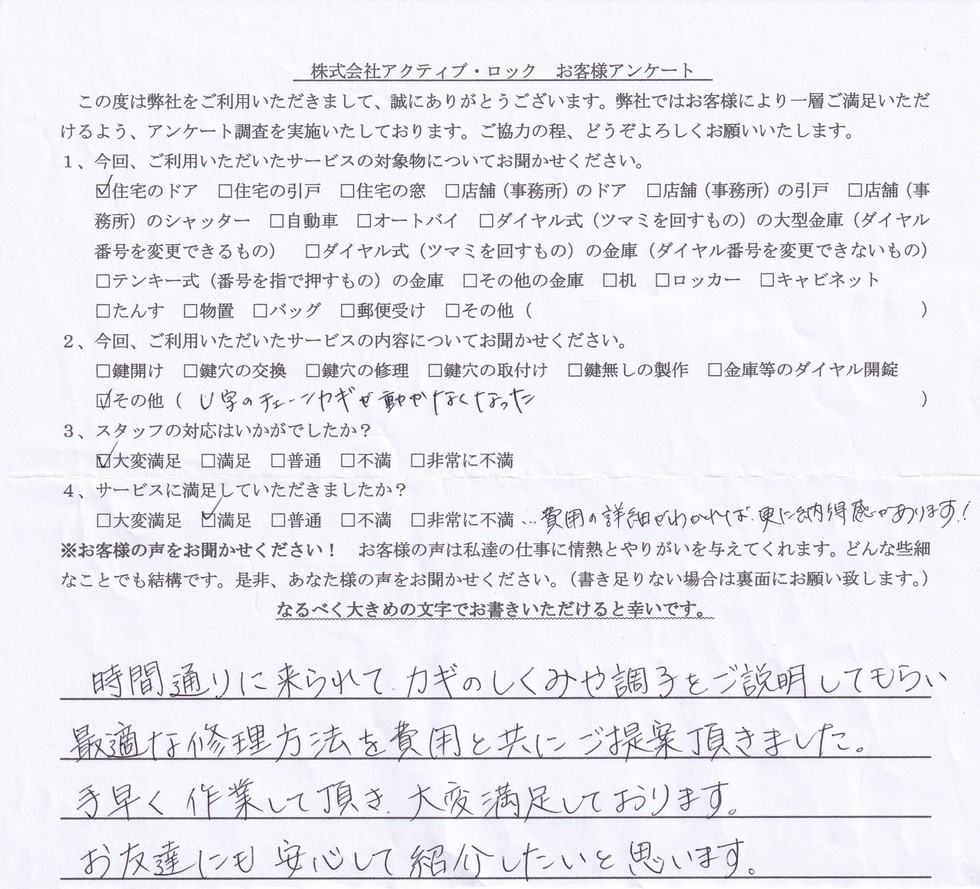 株式会社アクティブ・ロック　お客様アンケート
この度は弊社をご利用いただきまして、誠にありがとうございます。弊社ではお客様により一層ご満足いただ
けるよう、アンケート調査を実施いたしております。ご協力の程、どうぞよろしくお願いいたします。
１、今回、ご利用いただいたサービスの対象物についてお聞かせください。
☑住宅のドア　□住宅の引戸　□住宅の窓　□店舗（事務所）のドア　□店舗（事務所）の引戸　□店舗（事
務所）のシャッター　□自動車　□オートバイ　□ダイヤル式（ツマミを回すもの）の大型金庫（ダイヤル
番号を変更できるもの）　□ダイヤル式（ツマミを回すもの）の金庫（ダイヤル番号を変更できないもの）
□テンキー式（番号を指で押すもの）の金庫　□その他の金庫　□机　□ロッカー　□キャビネット
□たんす　□物置　□バッグ　□郵便受け　□その他（　　　）
２、今回、ご利用いただいたサービスの内容についてお聞かせください。
□鍵開け　□鍵穴の交換　□鍵穴の修理　□鍵穴の取付け　□鍵無しの製作　□金庫等のダイヤル開錠
☑その他（　U字のチェーンカギが動かなくなった　）
３、スタッフの対応はいかがでしたか？
☑大変満足　□満足　□普通　□不満　□非常に不満
４、サービスに満足していただきましたか？
□大変満足　☑満足　□普通　□不満　□非常に不満 …費用の詳細がわかれば、更に納得感があります！
※お客様の声をお聞かせください！　お客様の声は私達の仕事に情熱とやりがいを与えてくれます。どんな些細
なことでも結構です。是非、あなた様の声をお聞かせください。（書き足りない場合は裏面にお願い致します。）
なるべく大きめの文字でお書きいただけると幸いです。
時間通りに来られて、カギのしくみや調子をご説明してもらい
最適な修理方法を費用と共にご提案頂きました。
手早く作業して頂き、大変満足しております。
お友達にも安心して紹介したいと思います。